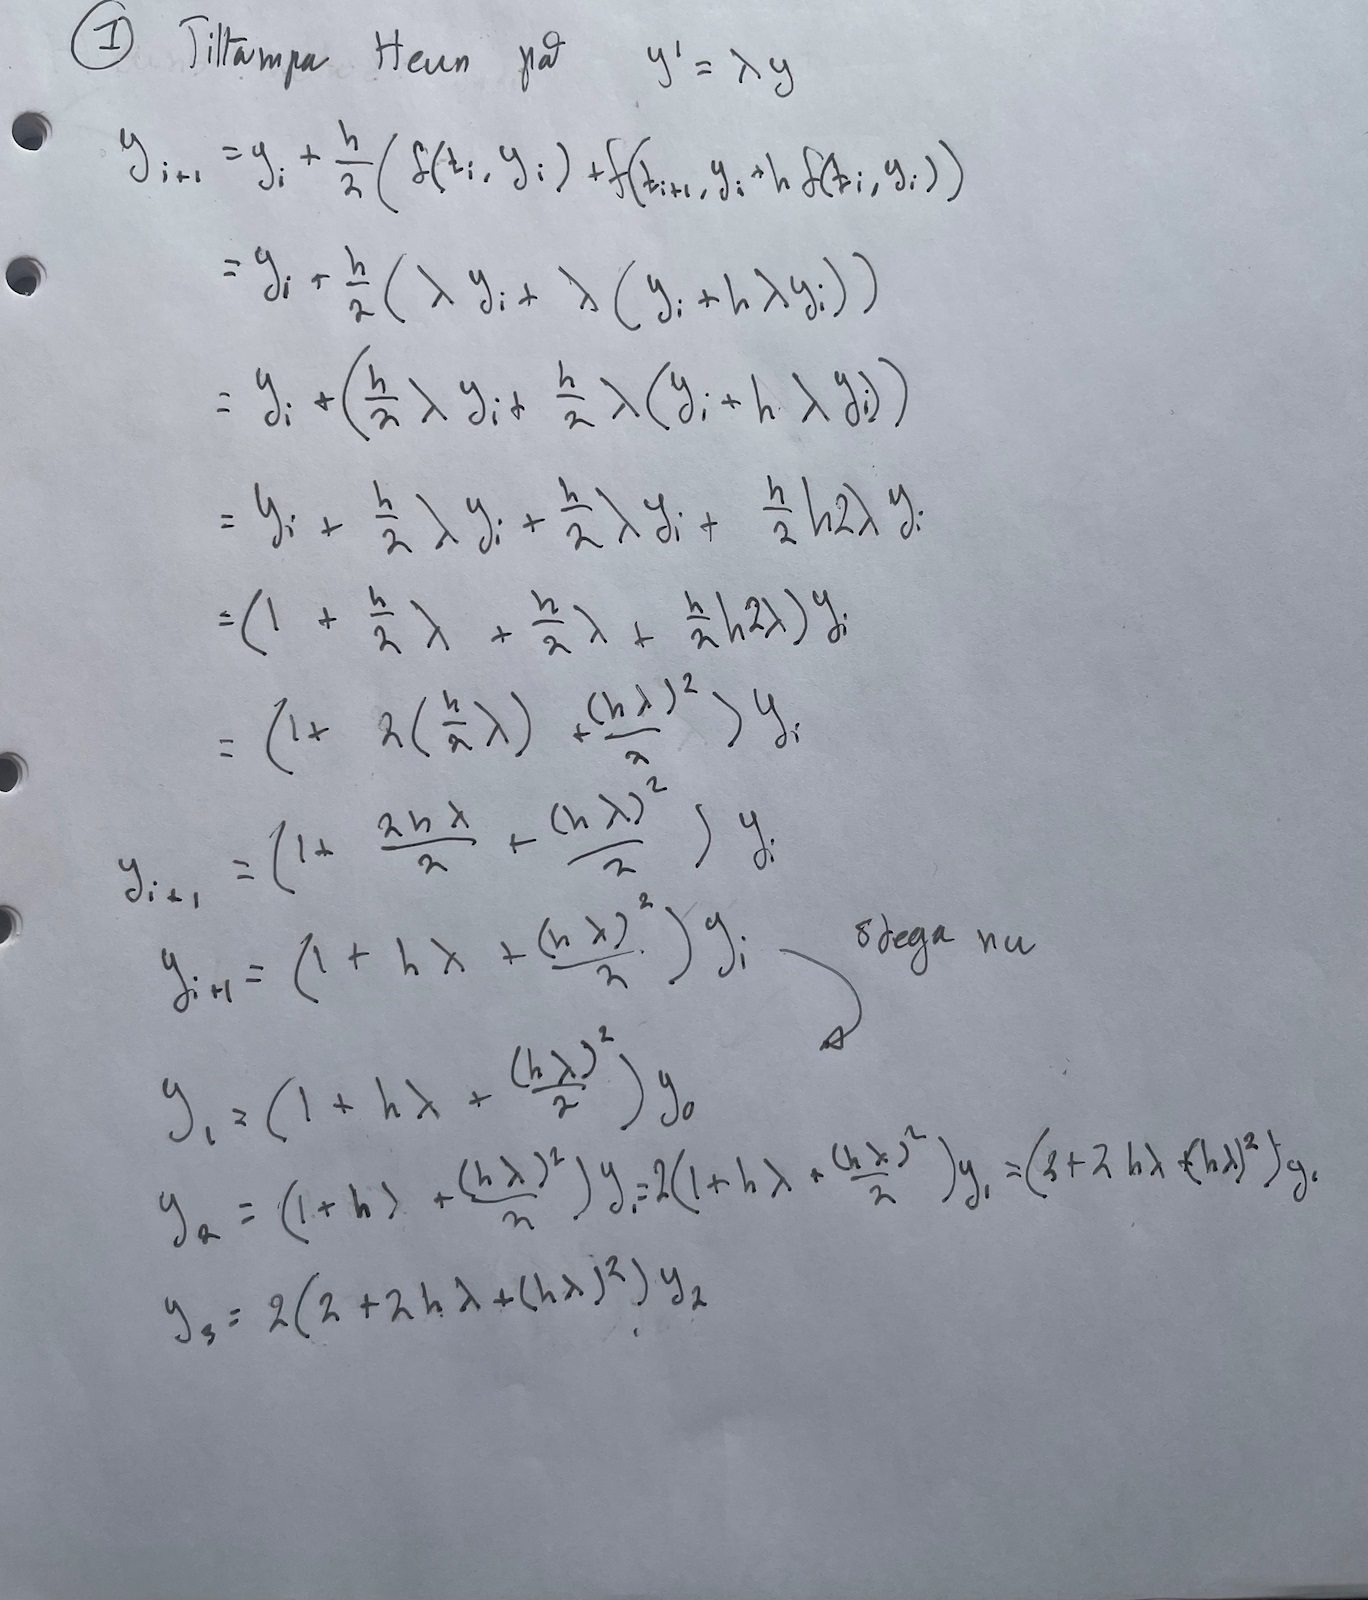 ① Tillämpa Heun på y' = λy
y_{i+1} = y_i + h/2 ( f(t_i, y_i) + f(t_{i+1}, y_i + h f(t_i, y_i))
= y_i + h/2 ( λ y_i + λ ( y_i + h λ y_i ) )
= y_i + ( h/2 λ y_i + h/2 λ ( y_i + h λ y_i ) )
= y_i + h/2 λ y_i + h/2 λ y_i + h/2 h2λ y_i
= ( 1 + h/2 λ + h/2 λ + h/2 h2λ ) y_i
= ( 1 + 2( h/2 λ ) + (hλ)²/2 ) y_i
y_{i+1} = ( 1 + 2hλ/2 + (hλ)²/2 ) y_i
y_{i+1} = ( 1 + hλ + (hλ)²/2 ) y_i stega nu
y_1 = ( 1 + hλ + (hλ)²/2 ) y_0
y_2 = ( 1 + hλ + (hλ)²/2 ) y_1 = 2( 1 + hλ + (hλ)²/2 ) y_1 = ( 2 + 2hλ + (hλ)² ) y_1
y_3 = 2( 2 + 2hλ + (hλ)² ) y_2